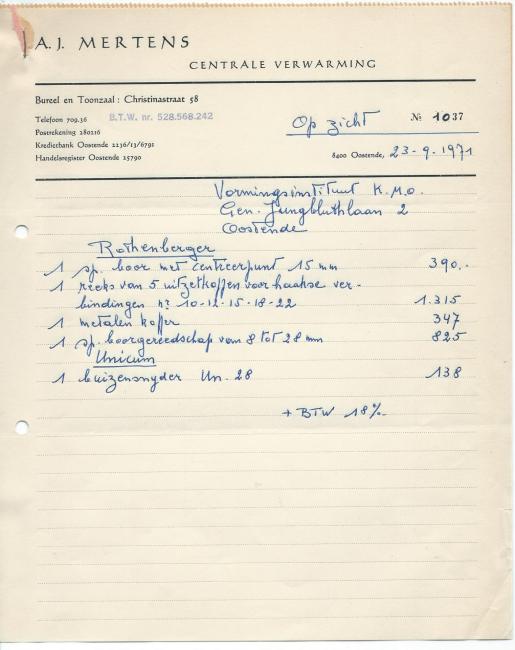 A. J. MERTENS
CENTRALE VERWARMING
Bureel en Toonzaal : Christinastraat 58
Telefoon 709.36 B.T.W. nr. 528.568.242
Postrekening 280216
Kredietbank Oostende 2236/13/6791
Handelsregister Oostende 25790
Op zicht № 1037
8400 Oostende, 23-9.1971
Vormingsinstituut K.M.O.
Gen. Jungbluthlaan 2
Oostende
Rothenberger
1 sp. boor met centreerpunt 15 mm 390.-
1 reeks van 5 uitzetkoppen voor haakse ver-
bindingen nr 10-12-15-18-22 1.315
1 metalen koffer 347
1 sp. boorgereedschap van 8 tot 28 mm 825
Unicum
1 buizensnyder Un. 28 138
+ BTW 18%